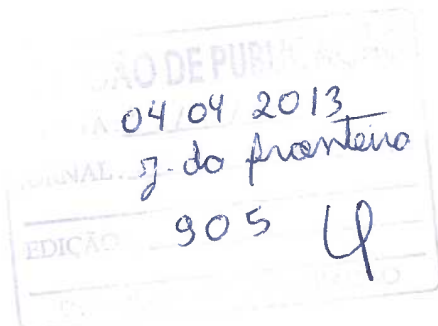 ÃO DE PUBLICAÇÃO
04 04 2013
JORNAL J. da fronteira
EDIÇÃO 905